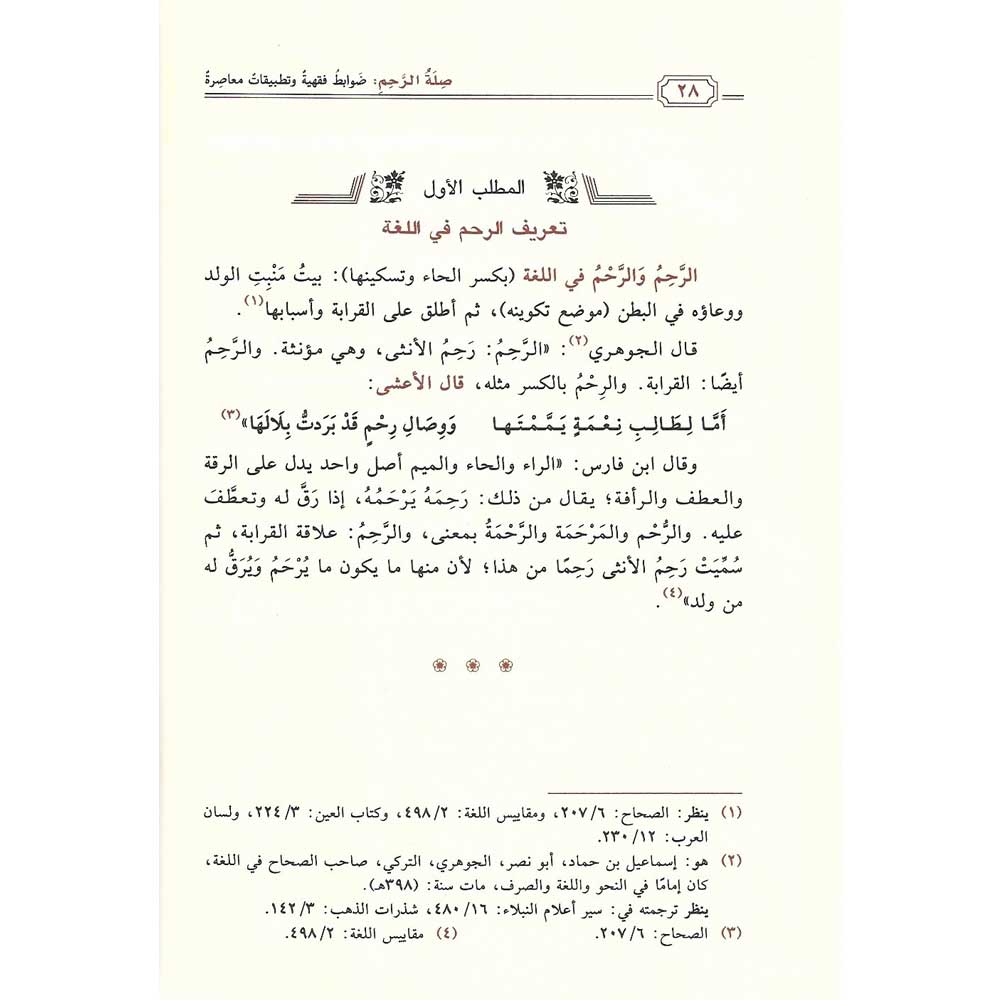 ٢٨
صِلَةُ الرَّحِمِ: ضَوابطُ فقهيةٌ وتطبيقاتٌ معاصِرةٌ
المطلب الأول
تعريف الرحم في اللغة
الرَّحِمُ وَالرَّحْمُ في اللغة (بكسر الحاء وتسكينها): بيتُ مَنْبِتِ الولد
ووعاؤه في البطن (موضع تكوينه)، ثم أطلق على القرابة وأسبابها(١).
قال الجوهري(٢): «الرَّحِمُ: رَحِمُ الأنثى، وهي مؤنثة. والرَّحِمُ
أيضًا: القرابة. والرِحْمُ بالكسر مثله، قال الأعشى:
أَمَّا لِطَالِبِ نِعْمَةٍ يَمَّمْتَها وَوِصَالِ رِحْمٍ قَدْ بَرَدتُّ بِلَالَهَا»(٣)
وقال ابن فارس: «الراء والحاء والميم أصل واحد يدل على الرقة
والعطف والرأفة؛ يقال من ذلك: رَحِمَهُ يَرْحَمُهُ، إذا رَقَّ له وتعطَّفَ
عليه. والرُّحْم والمَرْحَمَة والرَّحْمَةُ بمعنى، والرَّحِمُ: علاقة القرابة، ثم
سُمِّيَتْ رَحِمُ الأنثى رَحِمًا من هذا؛ لأن منها ما يكون ما يُرْحَمُ وَيُرَقُّ له
من ولد»(٤).
(١) ينظر: الصحاح: ٢٠٧/٦، ومقاييس اللغة: ٤٩٨/٢، وكتاب العين: ٢٢٤/٣، ولسان
العرب: ٢٣٠/١٢.
(٢) هو: إسماعيل بن حماد، أبو نصر، الجوهري، التركي، صاحب الصحاح في اللغة،
كان إمامًا في النحو واللغة والصرف، مات سنة: (٣٩٨هـ).
ينظر ترجمته في: سير أعلام النبلاء: ٤٨٠/١٦، شذرات الذهب: ١٤٢/٣.
(٣) الصحاح: ٢٠٧/٦. (٤) مقاييس اللغة: ٤٩٨/٢.